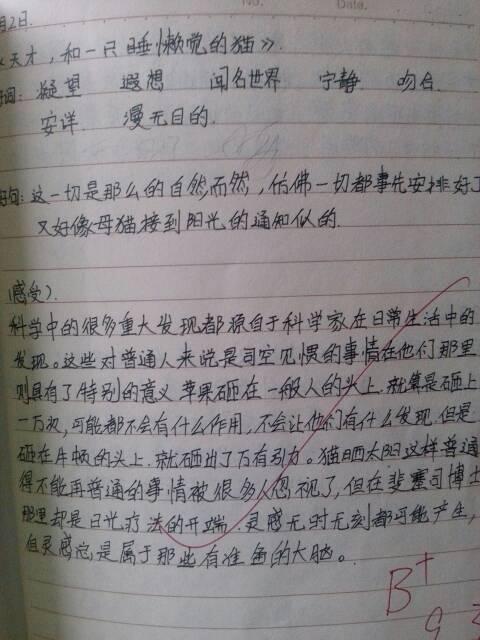 No. Date.
月2日.
《天才，和一只睡懒觉的猫》.
好词: 凝望 遐想 闻名世界 宁静 吻合
安详 漫无目的.
好句: 这一切是那么的自然而然，仿佛一切都事先安排好了
又好像母猫接到阳光的通知似的.
(感受).
科学中的很多重大发现都源自于科学家在日常生活中的
发现。这些对普通人来说是司空见惯的事情在他们那里
则具有了特别的意义.苹果砸在一般人的头上.就算是砸上
一万次，可能都不会有什么作用，不会让他们有什么发现.但是
砸在牛顿的头上.就砸出了万有引力。猫晒太阳这样普通
得不能再普通的事情被很多人忽视了，但在斐塞司博士
那里却是日光疗法的开端.灵感无时无刻都可能产生，
但灵感总是属于那些有准备的大脑。
B+